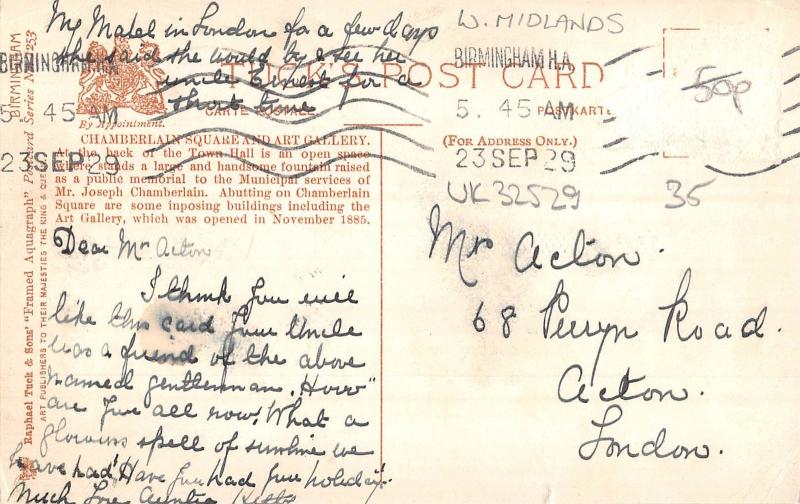 My Mabel in London for a few days
she said she would be & see her
uncle Ernest for a
short time
W. MIDLANDS
BIRMINGHAM
BIRMINGHAM H.A.
5. 45 AM
23 SEP 29
BIRMINGHAM H.A.
5. 45 AM
23 SEP 29
TUCK'S POST CARD
CARTE POSTALE
POSTKARTE
50p
By Appointment.
(FOR ADDRESS ONLY.)
CHAMBERLAIN SQUARE AND ART GALLERY.
At the back of the Town Hall is an open space
where stands a large and handsome fountain raised
as a public memorial to the Municipal services of
Mr. Joseph Chamberlain. Abutting on Chamberlain
Square are some inposing buildings including the
Art Gallery, which was opened in November 1885.
UK32529
35
Raphael Tuck & Sons' "Framed Aquagraph" Postcard Series No.
ART PUBLISHERS TO THEIR MAJESTIES THE KING & QUEEN
Dear Mr Acton
I think you will
like this card your Uncle
was a friend of the above
named gentleman. How
are you all now. What a
glorious spell of sunshine we
have had. Have you had your holiday.
Much Love Auntie
Mr Acton.
68 Perryn Road.
Acton.
London.